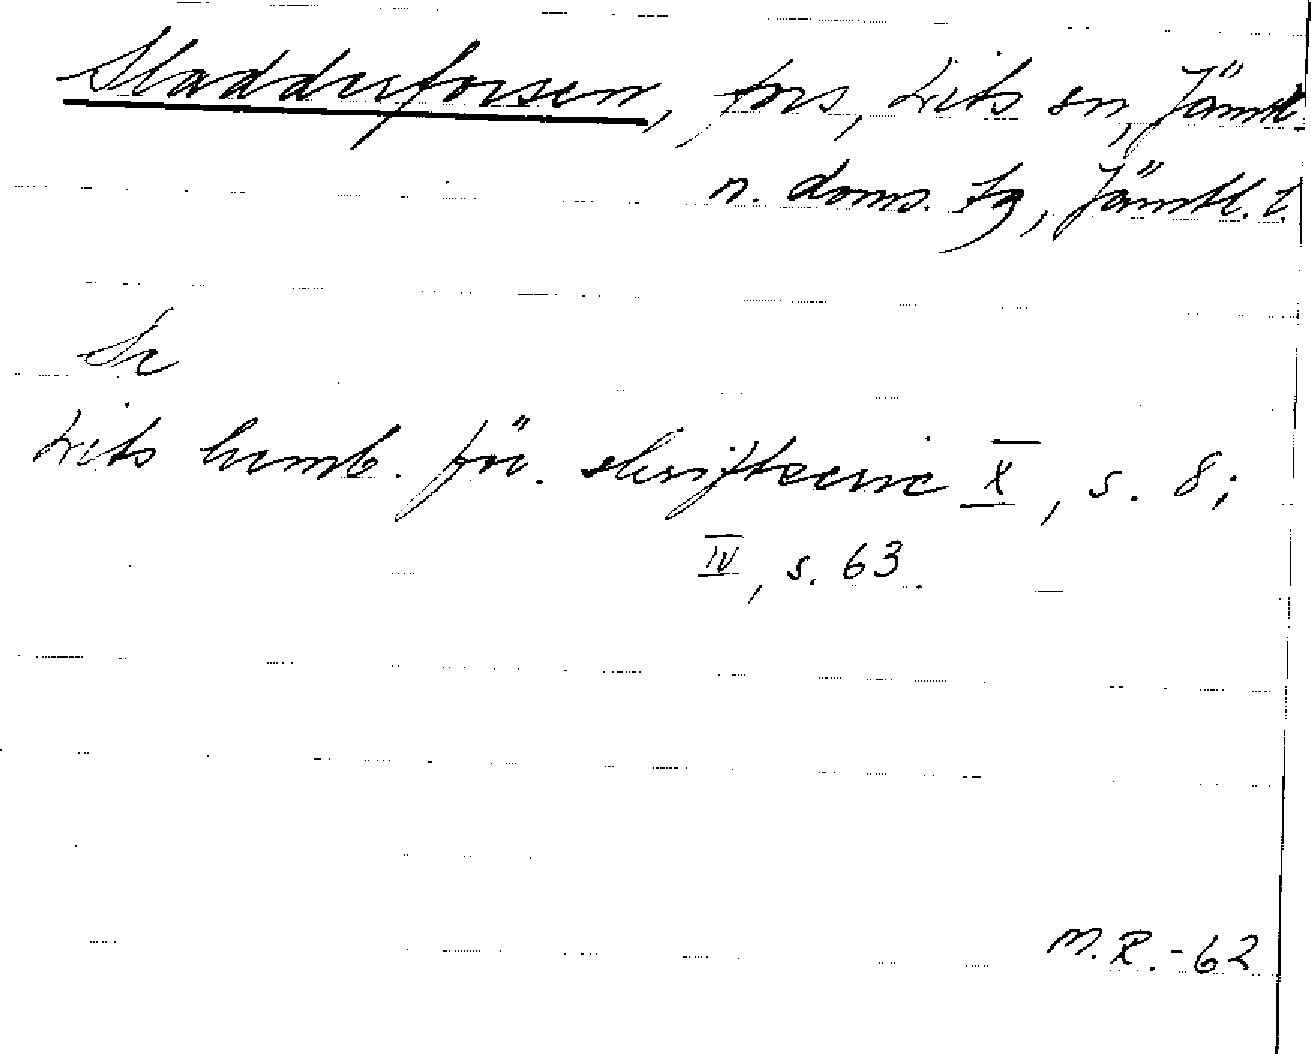 Sladderforsen, fors, Lits sn, Jämtl.
n. doms. tg, Jämtl. l.
Se
Lits hemb. för. skriftserie X, s. 8;
IV, s. 63.
M.R.-62